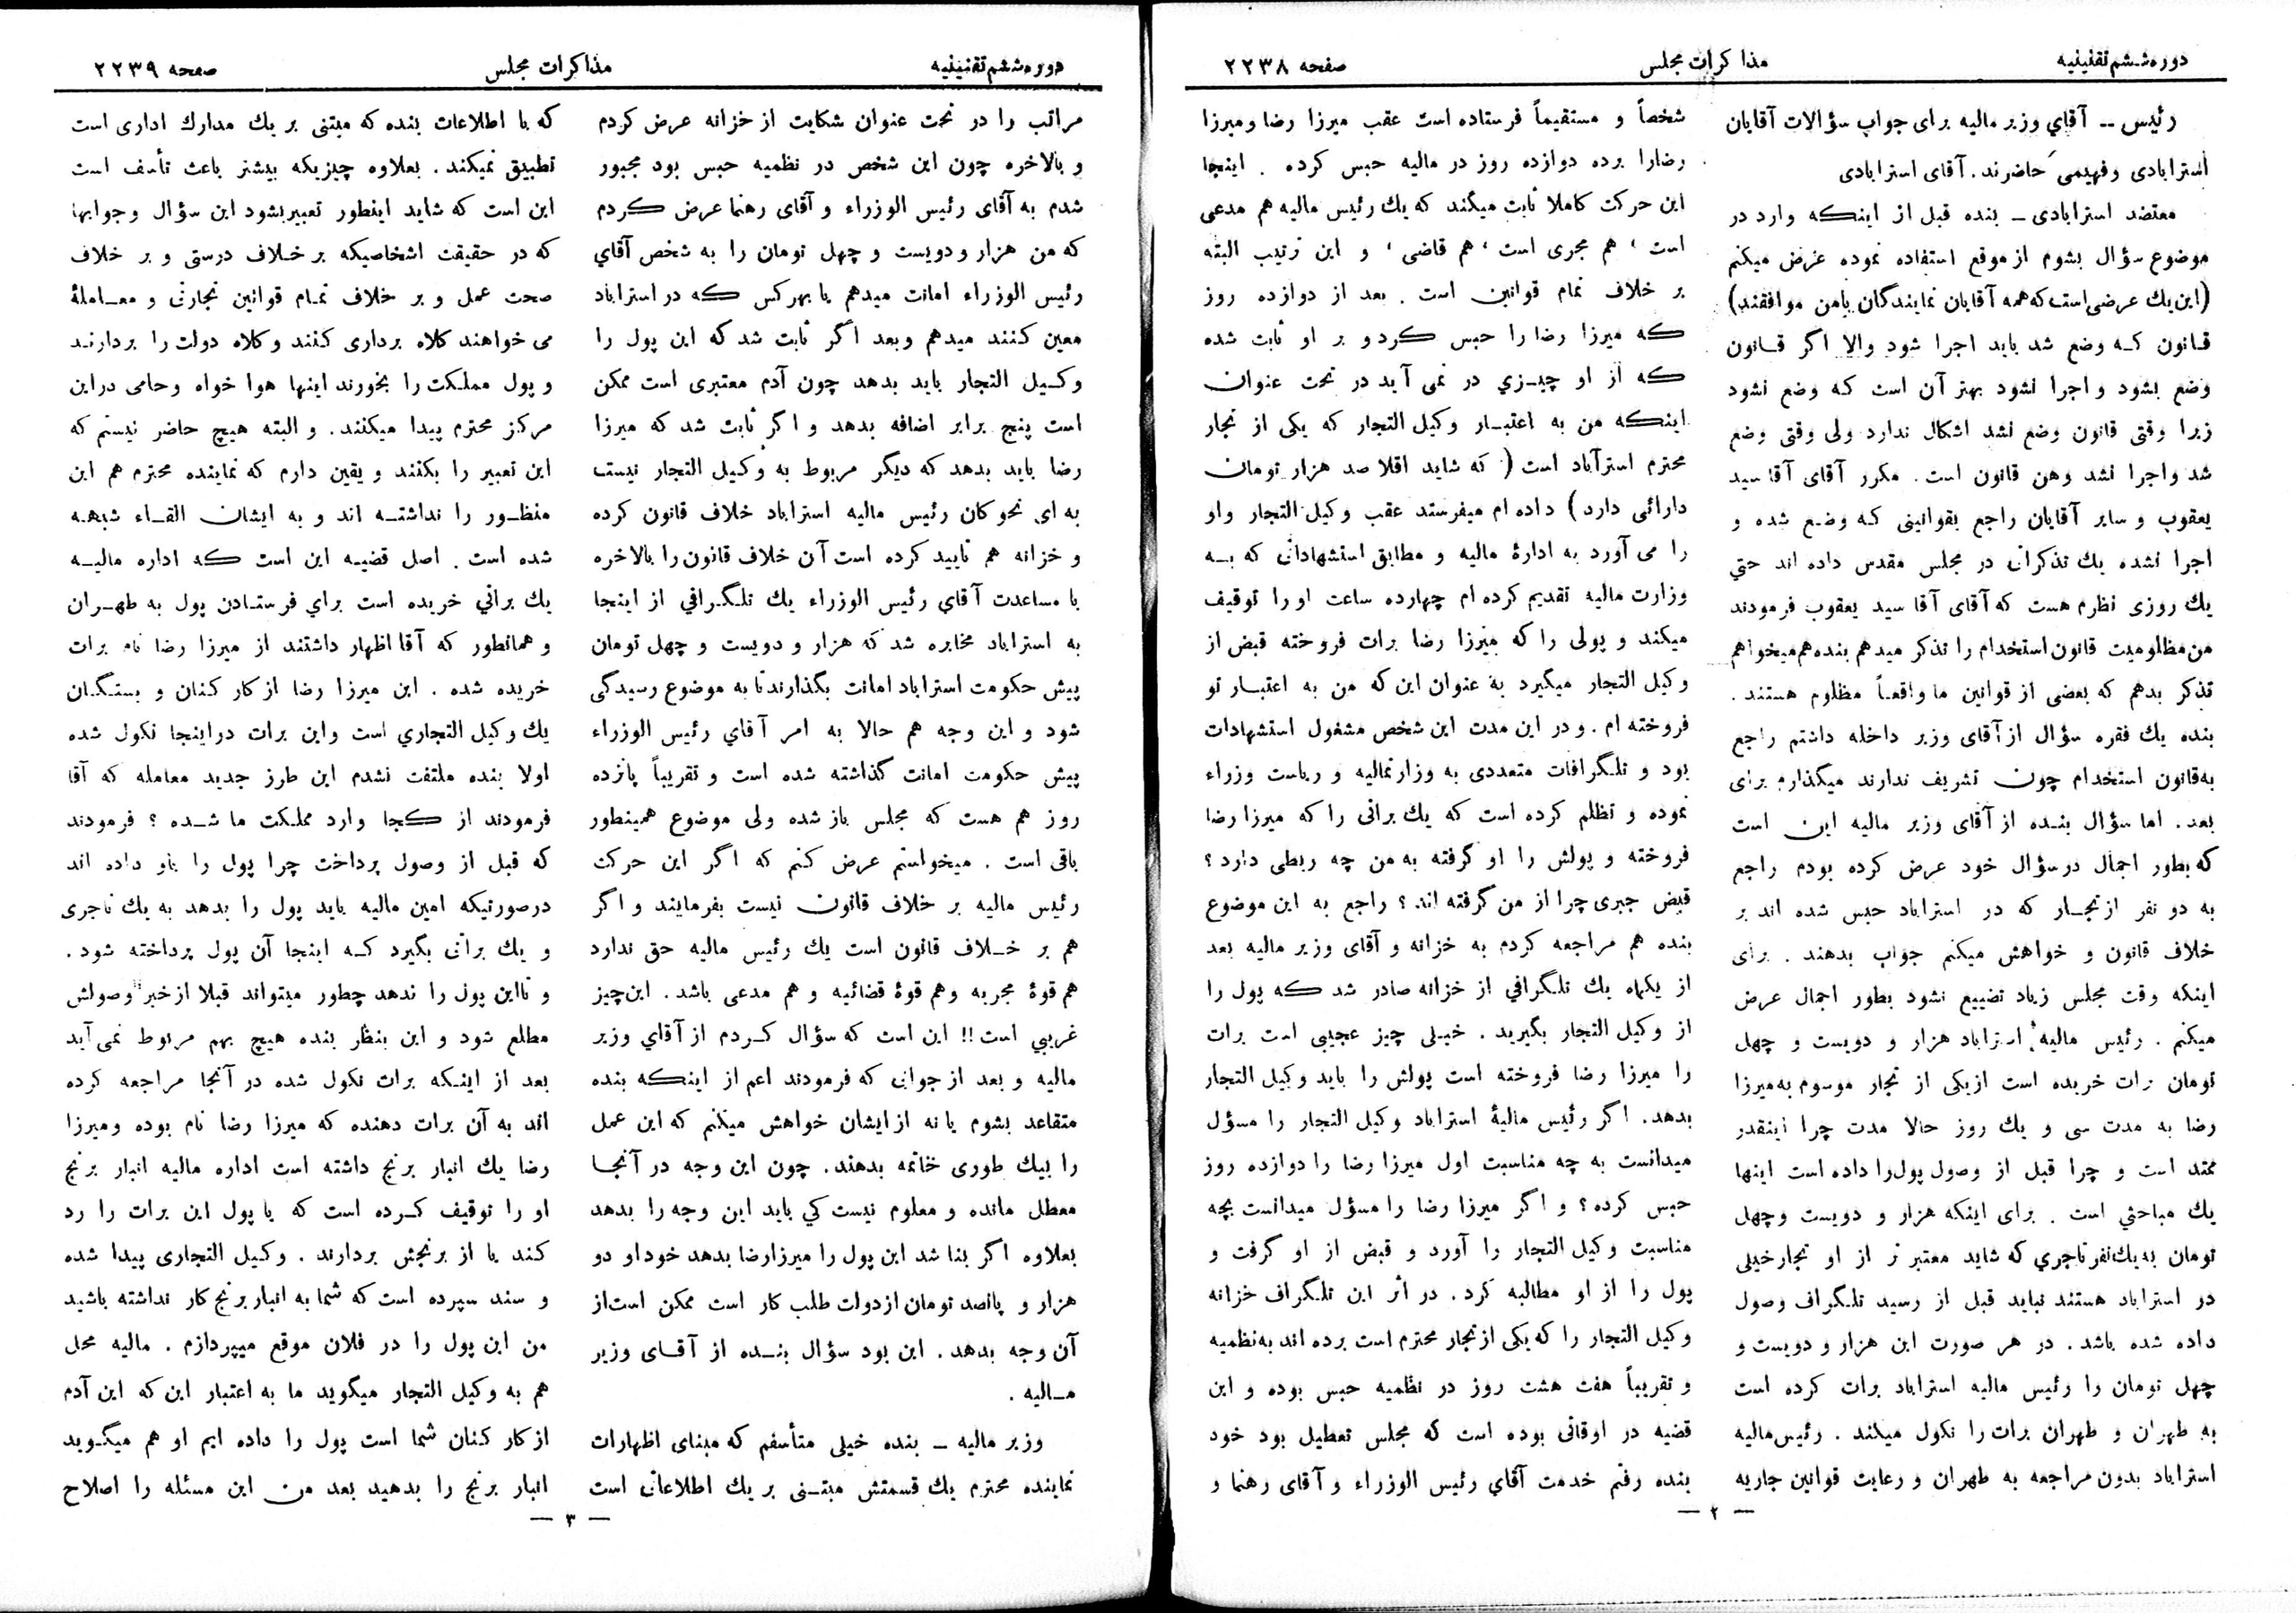 دوره ششم تقنینیه
مذاکرات مجلس
صفحه ۲۲۳۸
رئیس ــ آقای وزیر مالیه برای جواب سؤالات آقایان
استرابادی وفهیمی حاضرند. آقای استرابادی
معتضد استرابادی ــ بنده قبل از اینکه وارد در
موضوع سؤال بشوم از موقع استفاده نموده عرض میکنم
(این یك عرضی است که همه آقایان نمایندگان بامن موافقند)
قانون که وضع شد باید اجرا شود والا اگر قانون
وضع بشود و اجرا نشود بهتر آن است که وضع نشود
زیرا وقتی قانون وضع نشد اشکال ندارد ولی وقتی وضع
شد و اجرا نشد وهن قانون است. مکرر آقای آقا سید
یعقوب و سایر آقایان راجع بقوانینی که وضع شده و
اجرا نشده یك تذکراتی در مجلس مقدس داده اند حتی
یك روزی نظرم هست که آقای آقا سید یعقوب فرمودند
من مظلومیت قانون استخدام را تذکر میدهم بنده هم میخواهم
تذکر بدهم که بعضی از قوانین ما واقعاً مظلوم هستند .
بنده یك فقره سؤال از آقای وزیر داخله داشتم راجع
به قانون استخدام چون تشریف ندارند میگذارم برای
بعد. اما سؤال بنده از آقای وزیر مالیه این است
که بطور اجمال در سؤال خود عرض کرده بودم راجع
به دو نفر از تجار که در استراباد حبس شده اند بر
خلاف قانون و خواهش میکنم جواب بدهند . برای
اینکه وقت مجلس زیاد تضییع نشود بطور اجمال عرض
میکنم . رئیس مالیه استراباد هزار و دویست و چهل
تومان برات خریده است از یکی از تجار موسوم به میرزا
رضا به مدت سی و یك روز حالا مدت چرا اینقدر
ممتد است و چرا قبل از وصول پول را داده است اینها
یك مباحثی است . برای اینکه هزار و دویست وچهل
تومان به یك نفر تاجری که شاید معتبر تر از او تجار خیلی
در استراباد هستند نباید قبل از رسید تلگراف وصول
داده شده باشد . در هر صورت این هزار و دویست و
چهل تومان را رئیس مالیه استراباد برات کرده است
به طهران و طهران برات را نکول میکند . رئیس مالیه
استراباد بدون مراجعه به طهران و رعایت قوانین جاریه
شخصاً و مستقیماً فرستاده است عقب میرزا رضا ومیرزا
رضارا برده دوازده روز در مالیه حبس کرده . اینجا
این حرکت کاملا ثابت میکند که یك رئیس مالیه هم مدعی
است ، هم مجری است ، هم قاضی ، و این ترتیب البته
بر خلاف تمام قوانین است . بعد از دوازده روز
که میرزا رضا را حبس کرد و بر او ثابت شده
که از او چیزی در نمی آید در تحت عنوان
اینکه من به اعتبار وکیل التجار که یکی از تجار
محترم استرآباد است ( که شاید اقلا صد هزار تومان
دارائی دارد ) داده ام میفرستد عقب وکیل التجار واو
را می آورد به ادارهٔ مالیه و مطابق استشهاداتی که به
وزارت مالیه تقدیم کرده ام چهارده ساعت او را توقیف
میکند و پولی را که میرزا رضا برات فروخته قبض از
وکیل التجار میگیرد به عنوان این که من به اعتبار تو
فروخته ام . و در این مدت این شخص مشغول استشهادات
بود و تلگرافات متعددی به وزارتمالیه و ریاست وزراء
نموده و تظلم کرده است که یك براتی را که میرزا رضا
فروخته و پولش را او گرفته به من چه ربطی دارد ؟
قبض جبری چرا از من گرفته اند ؟ راجع به این موضوع
بنده هم مراجعه کردم به خزانه و آقای وزیر مالیه بعد
از یکماه یك تلگرافی از خزانه صادر شد که پول را
از وکیل التجار بگیرید . خیلی چیز عجیبی است برات
را میرزا رضا فروخته است پولش را باید وکیل التجار
بدهد. اگر رئیس مالیهٔ استراباد وکیل التجار را مسؤل
میدانست به چه مناسبت اول میرزا رضا را دوازده روز
حبس کرده ؟ و اگر میرزا رضا را مسؤل میدانست بچه
مناسبت وکیل التجار را آورد و قبض از او گرفت و
پول را از او مطالبه کرد . در اثر این تلگراف خزانه
وکیل التجار را که یکی از تجار محترم است برده اند به نظمیه
و تقریباً هفت هشت روز در نظمیه حبس بوده و این
قضیه در اوقاتی بوده است که مجلس تعطیل بود خود
بنده رفتم خدمت آقای رئیس الوزراء و آقای رهنما و
— ۲ —
دوره ششم تقنینیه
مذاکرات مجلس
صفحه ۲۲۳۹
مراتب را در تحت عنوان شکایت از خزانه عرض کردم
و بالاخره چون این شخص در نظمیه حبس بود مجبور
شدم به آقای رئیس الوزراء و آقای رهنما عرض کردم
که من هزار و دویست و چهل تومان را به شخص آقای
رئیس الوزراء امانت میدهم یا بهرکس که در استراباد
معین کنند میدهم وبعد اگر ثابت شد که این پول را
وکیل التجار باید بدهد چون آدم معتبری است ممکن
است پنج برابر اضافه بدهد و اگر ثابت شد که میرزا
رضا باید بدهد که دیگر مربوط به وکیل التجار نیست
به ای نحو کان رئیس مالیه استراباد خلاف قانون کرده
و خزانه هم تایید کرده است آن خلاف قانون را بالاخره
با مساعدت آقای رئیس الوزراء یك تلگرافی از اینجا
به استراباد مخابره شد که هزار و دویست و چهل تومان
پیش حکومت استراباد امانت بگذارند تا به موضوع رسیدگی
شود و این وجه هم حالا به امر آقای رئیس الوزراء
پیش حکومت امانت گذاشته شده است و تقریباً پانزده
روز هم هست که مجلس باز شده ولی موضوع همینطور
باقی است . میخواستم عرض کنم که اگر این حرکت
رئیس مالیه بر خلاف قانون نیست بفرمایند و اگر
هم بر خلاف قانون است یك رئیس مالیه حق ندارد
هم قوهٔ مجریه وهم قوهٔ قضائیه و هم مدعی باشد . این چیز
غریبی است !! این است که سؤال کردم از آقای وزیر
مالیه و بعد از جوابی که فرمودند اعم از اینکه بنده
متقاعد بشوم یا نه از ایشان خواهش میکنم که این عمل
را بیك طوری خاتمه بدهند. چون این وجه در آنجا
معطل مانده و معلوم نیست کی باید این وجه را بدهد
بعلاوه اگر بنا شد این پول را میرزارضا بدهد خود او دو
هزار و پانصد تومان از دولت طلب کار است ممکن است از
آن وجه بدهد . این بود سؤال بنده از آقای وزیر
مالیه .
وزیر مالیه ــ بنده خیلی متأسفم که مبنای اظهارات
نماینده محترم یك قسمتش مبتنی بر یك اطلاعاتی است
که با اطلاعات بنده که مبتنی بر یك مدارك اداری است
تطبیق نمیکند . بعلاوه چیزیکه بیشتر باعث تأسف است
این است که شاید اینطور تعبیر بشود این سؤال وجوابها
که در حقیقت اشخاصیکه بر خلاف درستی و بر خلاف
صحت عمل و بر خلاف تمام قوانین تجارتی و معاملهٔ
می خواهند کلاه برداری کنند و کلاه دولت را بردارند
و پول مملکت را بخورند اینها هوا خواه وحامی دراین
مرکز محترم پیدا میکنند. و البته هیچ حاضر نیستم که
این تعبیر را بکنند و یقین دارم که نماینده محترم هم این
منظور را نداشته اند و به ایشان القاء شبهه
شده است . اصل قضیه این است که اداره مالیه
یك براتی خریده است برای فرستادن پول به طهران
و همانطور که آقا اظهار داشتند از میرزا رضا نام برات
خریده شده . این میرزا رضا از کار کنان و بستگان
یك وکیل التجاری است واین برات دراینجا نکول شده
اولا بنده ملتفت نشدم این طرز جدید معامله که آقا
فرمودند از کجا وارد مملکت ما شده ؟ فرمودند
که قبل از وصول پرداخت چرا پول را باو داده اند
درصورتیکه امین مالیه باید پول را بدهد به یك تاجری
و یك براتی بگیرد که اینجا آن پول پرداخته شود .
و تااین پول را ندهد چطور میتواند قبلا از خبر وصولش
مطلع شود و این بنظر بنده هیچ بهم مربوط نمی آید
بعد از اینکه برات نکول شده در آنجا مراجعه کرده
اند به آن برات دهنده که میرزا رضا نام بوده ومیرزا
رضا یك انبار برنج داشته است اداره مالیه انبار برنج
او را توقیف کرده است که یا پول این برات را رد
کند یا از برنجش بردارند . وکیل التجاری پیدا شده
و سند سپرده است که شما به انبار برنج کار نداشته باشید
من این پول را در فلان موقع میپردازم . مالیه محل
هم به وکیل التجار میگوید ما به اعتبار این که این آدم
از کار کنان شما است پول را داده ایم او هم میگوید
انبار برنج را بدهید بعد من این مسئله را اصلاح
— ۳ —